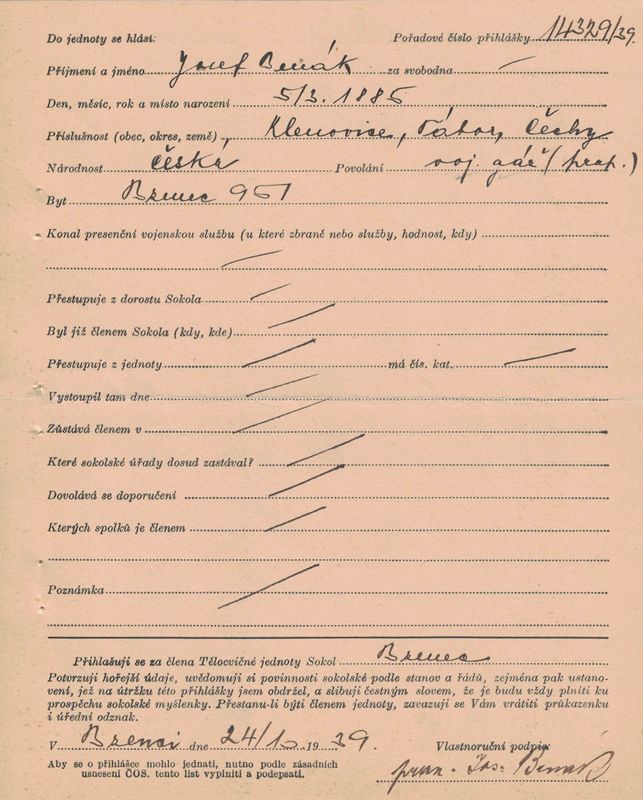 Do jednoty se hlásí: Pořadové číslo přihlášky 14329/39.
Příjmení a jméno Josef za svobodna —
Den, měsíc, rok a místo narození 5/3. 1885
Příslušnost (obec, okres, země) Klenovice, Tábor, Čechy
Národnost česká Povolání voj. gáž (prap.)
Byt 951
Konal presenční vojenskou službu (u které zbraně nebo služby, hodnost, kdy)
Přestupuje z dorostu Sokola
Byl již členem Sokola (kdy, kde)
Přestupuje z jednoty má čís. kat.
Vystoupil tam dne
Zůstává členem v
Které sokolské úřady dosud zastával?
Dovolává se doporučení
Kterých spolků je členem
Poznámka
Přihlašuji se za člena Tělocvičné jednoty Sokol
Potvrzuji hořejší údaje, uvědomuji si povinnosti sokolské podle stanov a řádů, zejména pak ustano-
vení, jež na útržku této přihlášky jsem obdržel, a slibuji čestným slovem, že je budu vždy plniti ku
prospěchu sokolské myšlenky. Přestanu-li býti členem jednoty, zavazuji se Vám vrátiti průkazenku
i úřední odznak.
V dne 24/10 1939.
Vlastnoruční podpis:
Aby se o přihlášce mohlo jednati, nutno podle zásadních
usnesení ČOS. tento list vyplniti a podepsati.
prap. Jos.